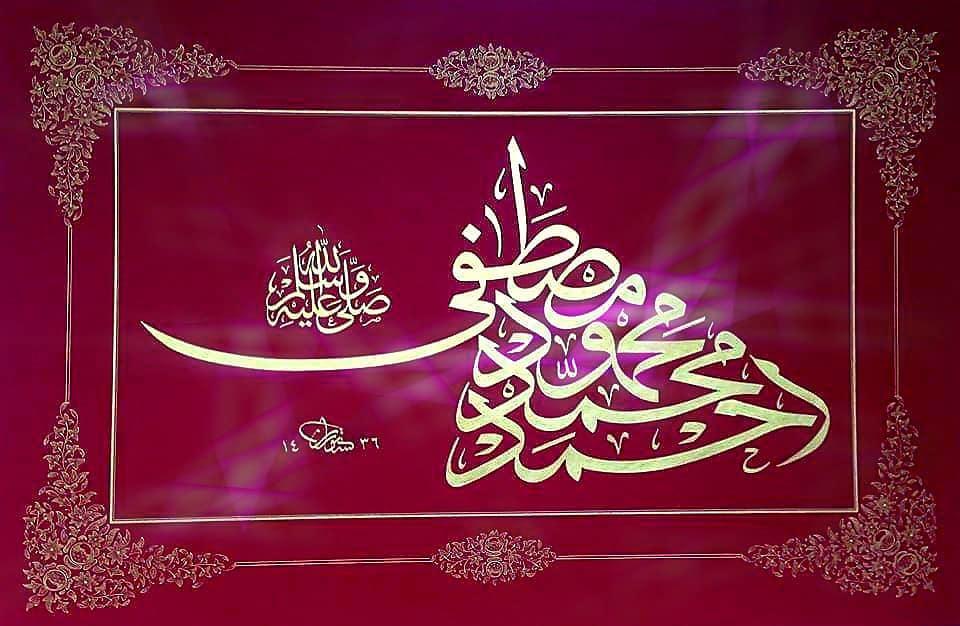 احمد محمد محمود مصطفى
صلى الله عليه وسلم
١٤٣٦